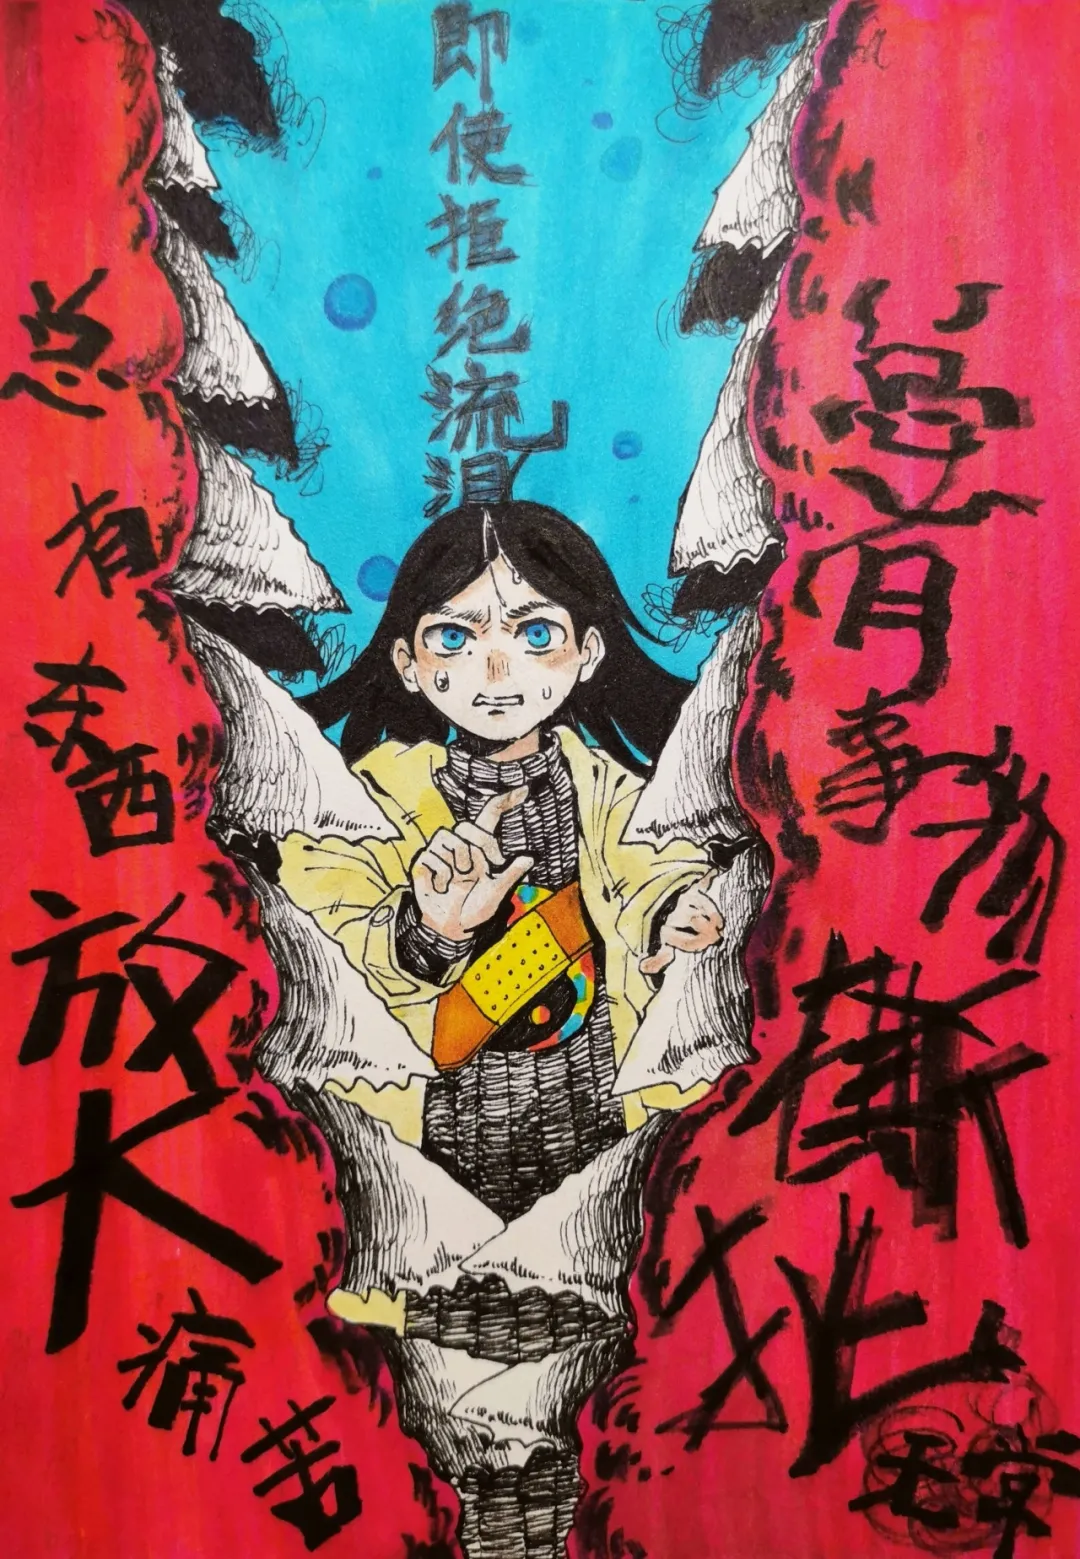 即使拒绝流泪
总有东西放大痛苦
总有事物撕扯